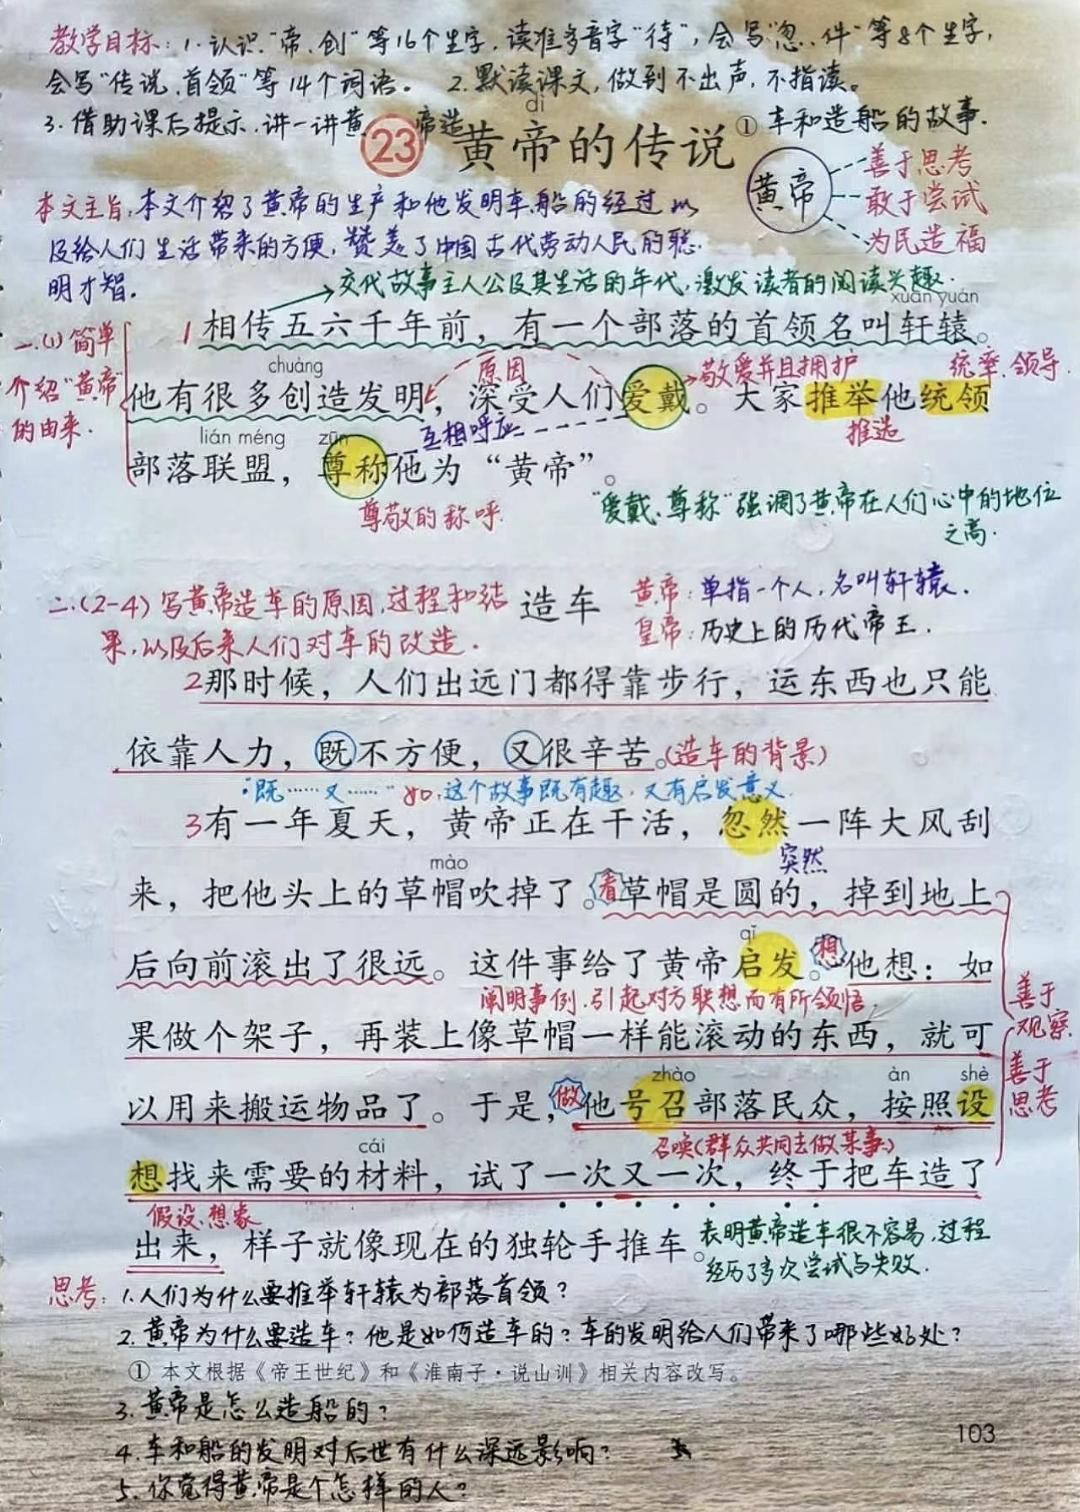 教学目标：1.认识"帝、创"等16个生字，读准多音字"待"，会写"忽、件"等8个生字，
会写"传说、首领"等14个词语。 2.默读课文，做到不出声，不指读。
3.借助课后提示，讲一讲黄帝造 车和造船的故事.
dì
23 黄帝的传说 ①
黄帝
善于思考
敢于尝试
为民造福
本文主旨,本文介绍了黄帝的生产和他发明车、船的经过以
及给人们生活带来的方便，赞美了中国古代劳动人民的聪
明才智.
交代故事主人公及其生活的年代,激发读者的阅读兴趣.
xuān yuán
一.(1)简单
介绍"黄帝"
的由来.
1相传五六千年前，有一个部落的首领名叫轩辕。
chuàng
原因
敬爱并且拥护
统率、领导.
他有很多创造发明，深受人们爱戴。大家推举他统领
lián méng zūn
互相呼应
推选
部落联盟，尊称他为“黄帝”。
尊敬的称呼.
"爱戴、尊称"强调了黄帝在人们心中的地位
之高.
二.(2-4)写黄帝造车的原因,过程和结
果,以及后来人们对车的改造.
造车
黄帝：单指一个人，名叫轩辕.
皇帝：历史上的历代帝王.
2那时候，人们出远门都得靠步行，运东西也只能
依靠人力，既不方便，又很辛苦。(造车的背景)
·既……又……"如,这个故事既有趣，又有启发意义.
3有一年夏天，黄帝正在干活，忽然一阵大风刮
突然
mào
来，把他头上的草帽吹掉了。看草帽是圆的，掉到地上
qǐ
后向前滚出了很远。这件事给了黄帝启发。想他想：如
阐明事例,引起对方联想而有所领悟.
善于
观察
果做个架子，再装上像草帽一样能滚动的东西，就可
善于
思考
zhào àn shè
以用来搬运物品了。于是，做他号召部落民众，按照设
召唤(群众共同去做某事)
cái
想找来需要的材料，试了一次又一次，终于把车造了
假设、想象
出来，样子就像现在的独轮手推车。
表明黄帝造车很不容易,过程
经历了多次尝试与失败.
思考：1.人们为什么要推举轩辕为部落首领？
2.黄帝为什么要造车？他是如何造车的？车的发明给人们带来了哪些好处？
① 本文根据《帝王世纪》和《淮南子·说山训》相关内容改写。
3.黄帝是怎么造船的？
103
4.车和船的发明对后世有什么深远影响？
5.你觉得黄帝是个怎样的人？